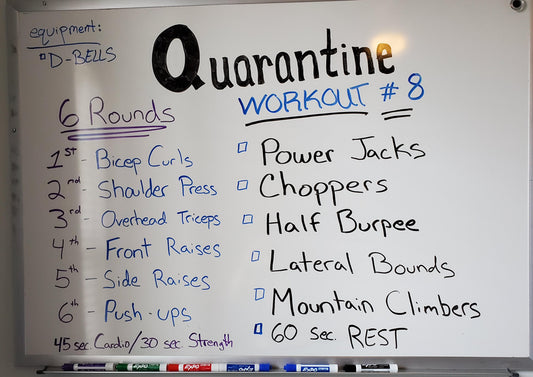 equipment:
D-BELLS
Quarantine
WORKOUT # 8
6 Rounds
1st - Bicep Curls
2nd - Shoulder Press
3rd - Overhead Triceps
4th - Front Raises
5th - Side Raises
6th - Push-ups
45 sec. Cardio/30 sec. Strength
Power Jacks
Choppers
Half Burpee
Lateral Bounds
Mountain Climbers
60 sec. REST
EXPO
EXPO
EXPO
EXPO